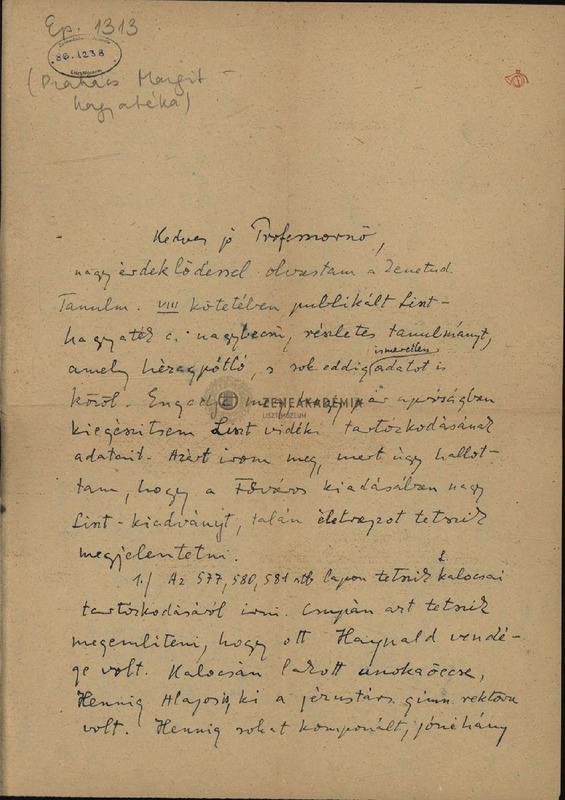 Ep. 1313
86.1238
(Prahács Margit
hagyatéka)
Kedves jó Professornő,
nagy érdeklődéssel olvastam a Zenetud.
Tanulm. VIII kötetében publikált Liszt-
hagyaték c. nagybecsű, részletes tanulmányt,
amely hézagpótló, s sok eddig ismeretlen adatot is
közöl. Engedje meg, hogy ár apróságban
kiegészítsem Liszt vidéki tartózkodásának
adatait. Azért írom meg, mert úgy hallot-
tam, hogy a Főváros kiadásában nagy
Liszt-kiadványt, talán életrajzot tetszik
megjelentetni.
1./ Az 577, 580, 581 stb lapon tetszik L. kalocsai
tartózkodásáról írni. Csupán azt tetszik
megemlíteni, hogy ott Haynald vendé-
ge volt. Kalocsán lakott unokaöccse,
Hennig Alajos is, ki a jézustárs. gimn. rektora
volt. Hennig sokat komponált, jónéhány
ZENEAKADÉMIA
LISZT MÚZEUM